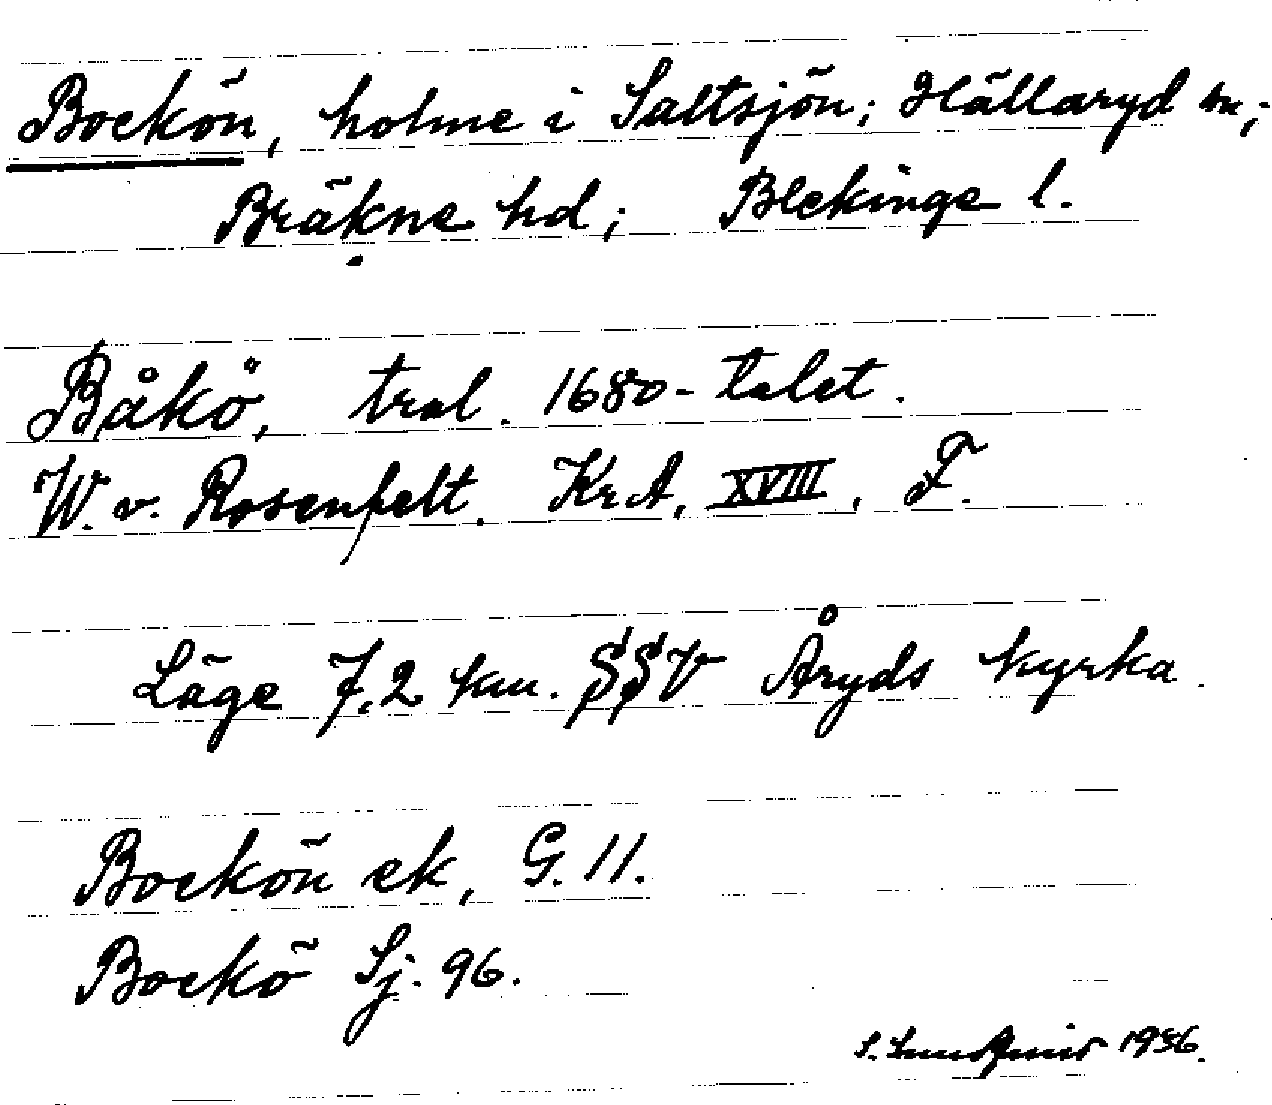 Bockön, holme i Saltsjön; Hällaryd sn;
Bräkne hd; Blekinge l.
Båkö, tral. 1680-talet.
W. v. Rosenfelt. KrA, XVIII, F.
Läge 7.2 km. SSV Åryds kyrka.
Bockön ek, G. 11.
Bockö Sj. 96.
S. 1936.